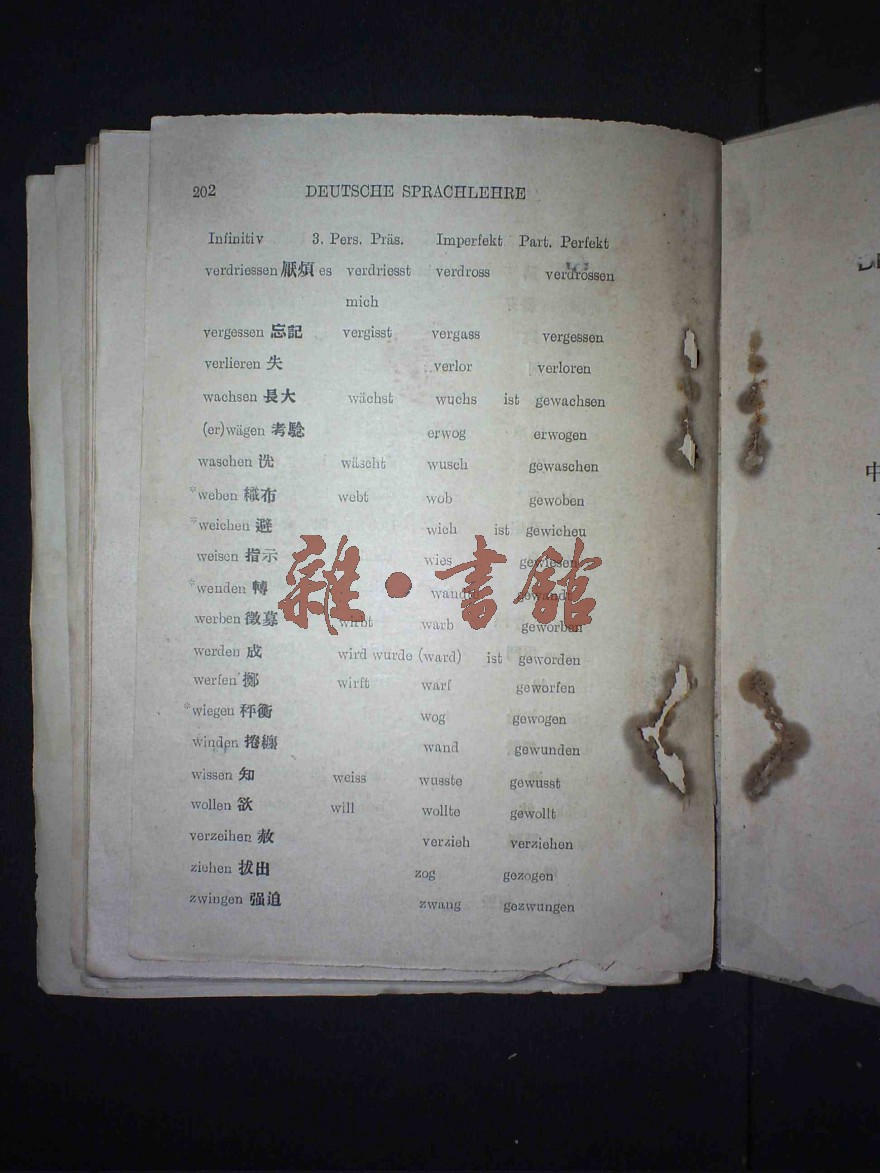 202 DEUTSCHE SPRACHLEHRE
Infinitiv 3. Pers. Präs. Imperfekt Part. Perfekt
verdriessen 厭煩 es verdriesst verdross verdrossen
mich
vergessen 忘記 vergisst vergass vergessen
verlieren 失 verlor verloren
wachsen 長大 wächst wuchs ist gewachsen
(er)wägen 考驗 erwog erwogen
waschen 洗 wäscht wusch gewaschen
*weben 織布 webt wob gewoben
*weichen 避 wich ist gewichen
weisen 指示 wies gewiesen
*wenden 轉 wandte gewandt
werben 徵募 wirbt warb geworben
werden 成 wird wurde (ward) ist geworden
werfen 擲 wirft warf geworfen
*wiegen 秤衡 wog gewogen
winden 捲纏 wand gewunden
wissen 知 weiss wusste gewusst
wollen 欲 will wollte gewollt
verzeihen 赦 verzieh verziehen
ziehen 拔出 zog gezogen
zwingen 强迫 zwang gezwungen
雜·書館
中